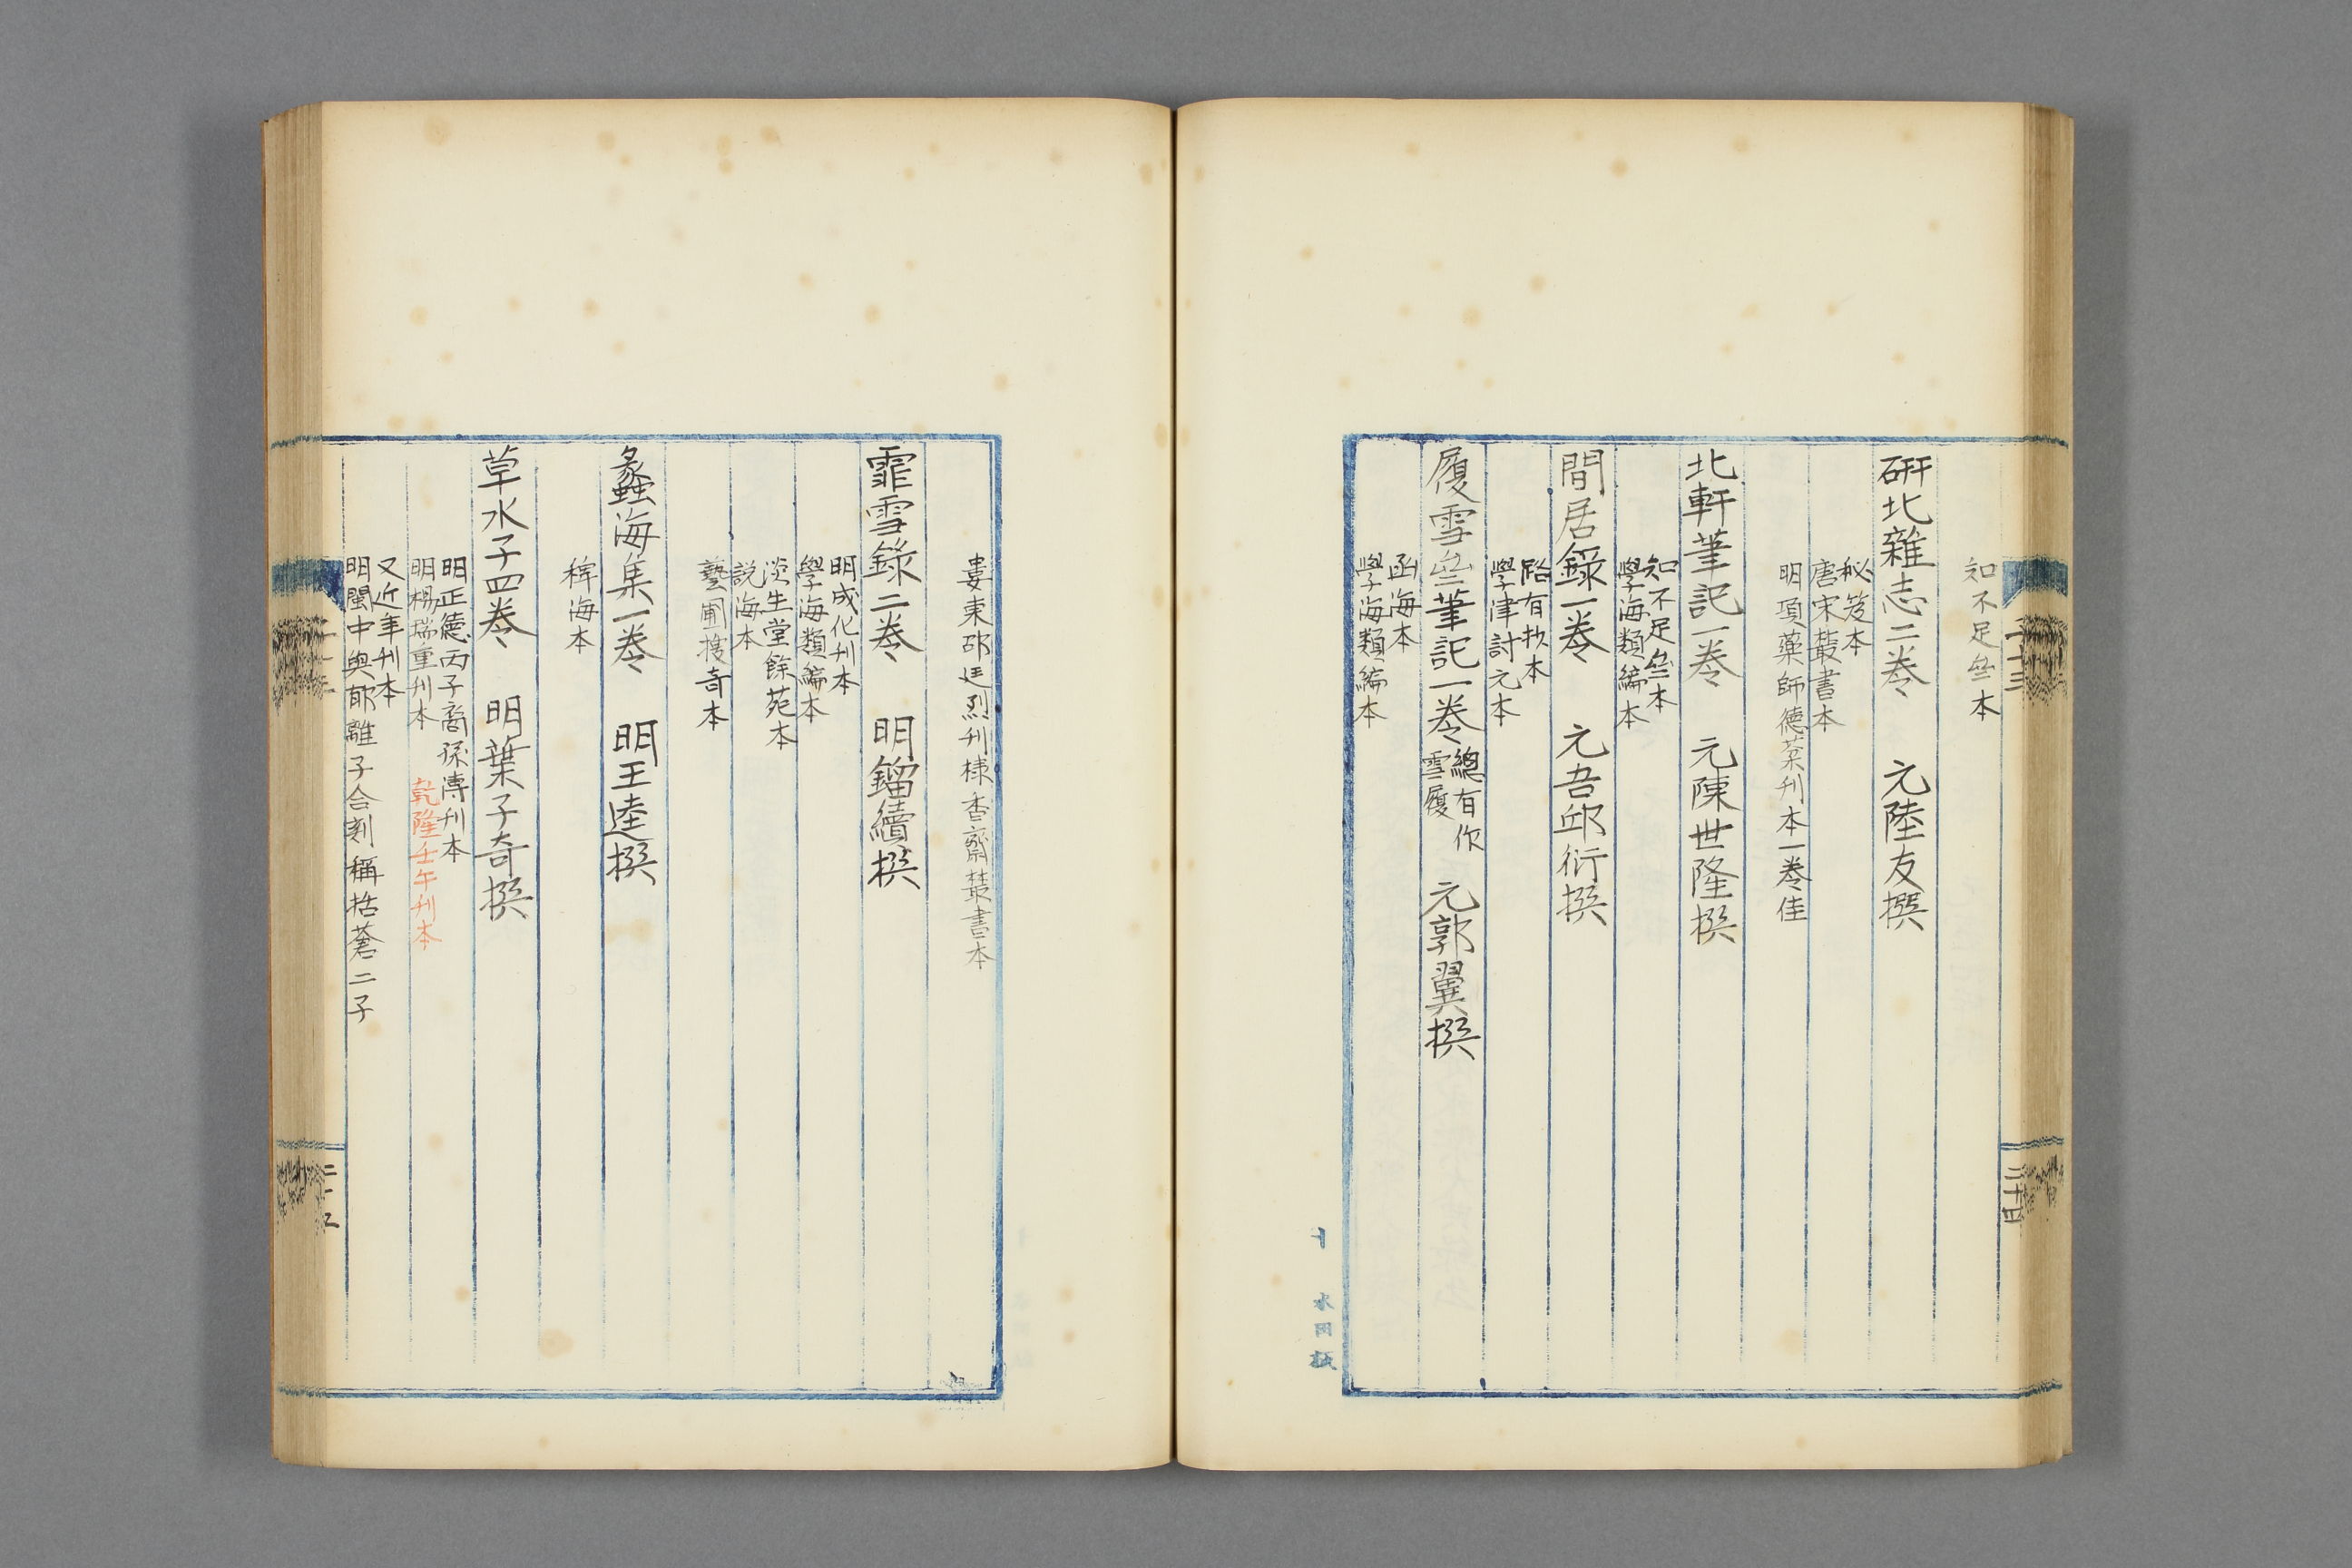 知不足䒭本
研北雜志二卷　元陸友撰
秘笈本
唐宋叢書本
明項藥師德棻刊本一卷佳
北軒筆記一卷　元陳世隆撰
知不足䒭本
學海類編本
間居錄一卷　元吾邱衍撰
路有抄本
學津討元本
履雪䒭筆記一卷　元郭翼撰
總有作
雪履
函海本
學海類編本
婁東邵廷烈刊棣香齋叢書本
霏雪錄二卷　明鎦績撰
明成化刊本
學海類編本
淡生堂餘苑本
說海本
藝圃搜奇本
蠡海集一卷　明王逵撰
稗海本
草木子四卷　明葉子奇撰
明正德丙子裔孫溥刊本
明楊瑞重刊本　乾隆壬午刊本
又近年刊本
明閩中與郁離子合刻稱括蒼二子